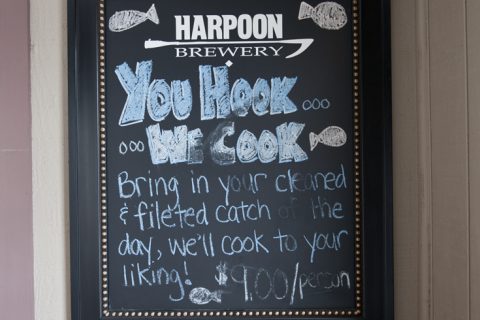 HARPOON
BREWERY
You Hook...
...We Cook
Bring in your cleaned
& fileted catch of the
day, we'll cook to your
liking! $9.00/person